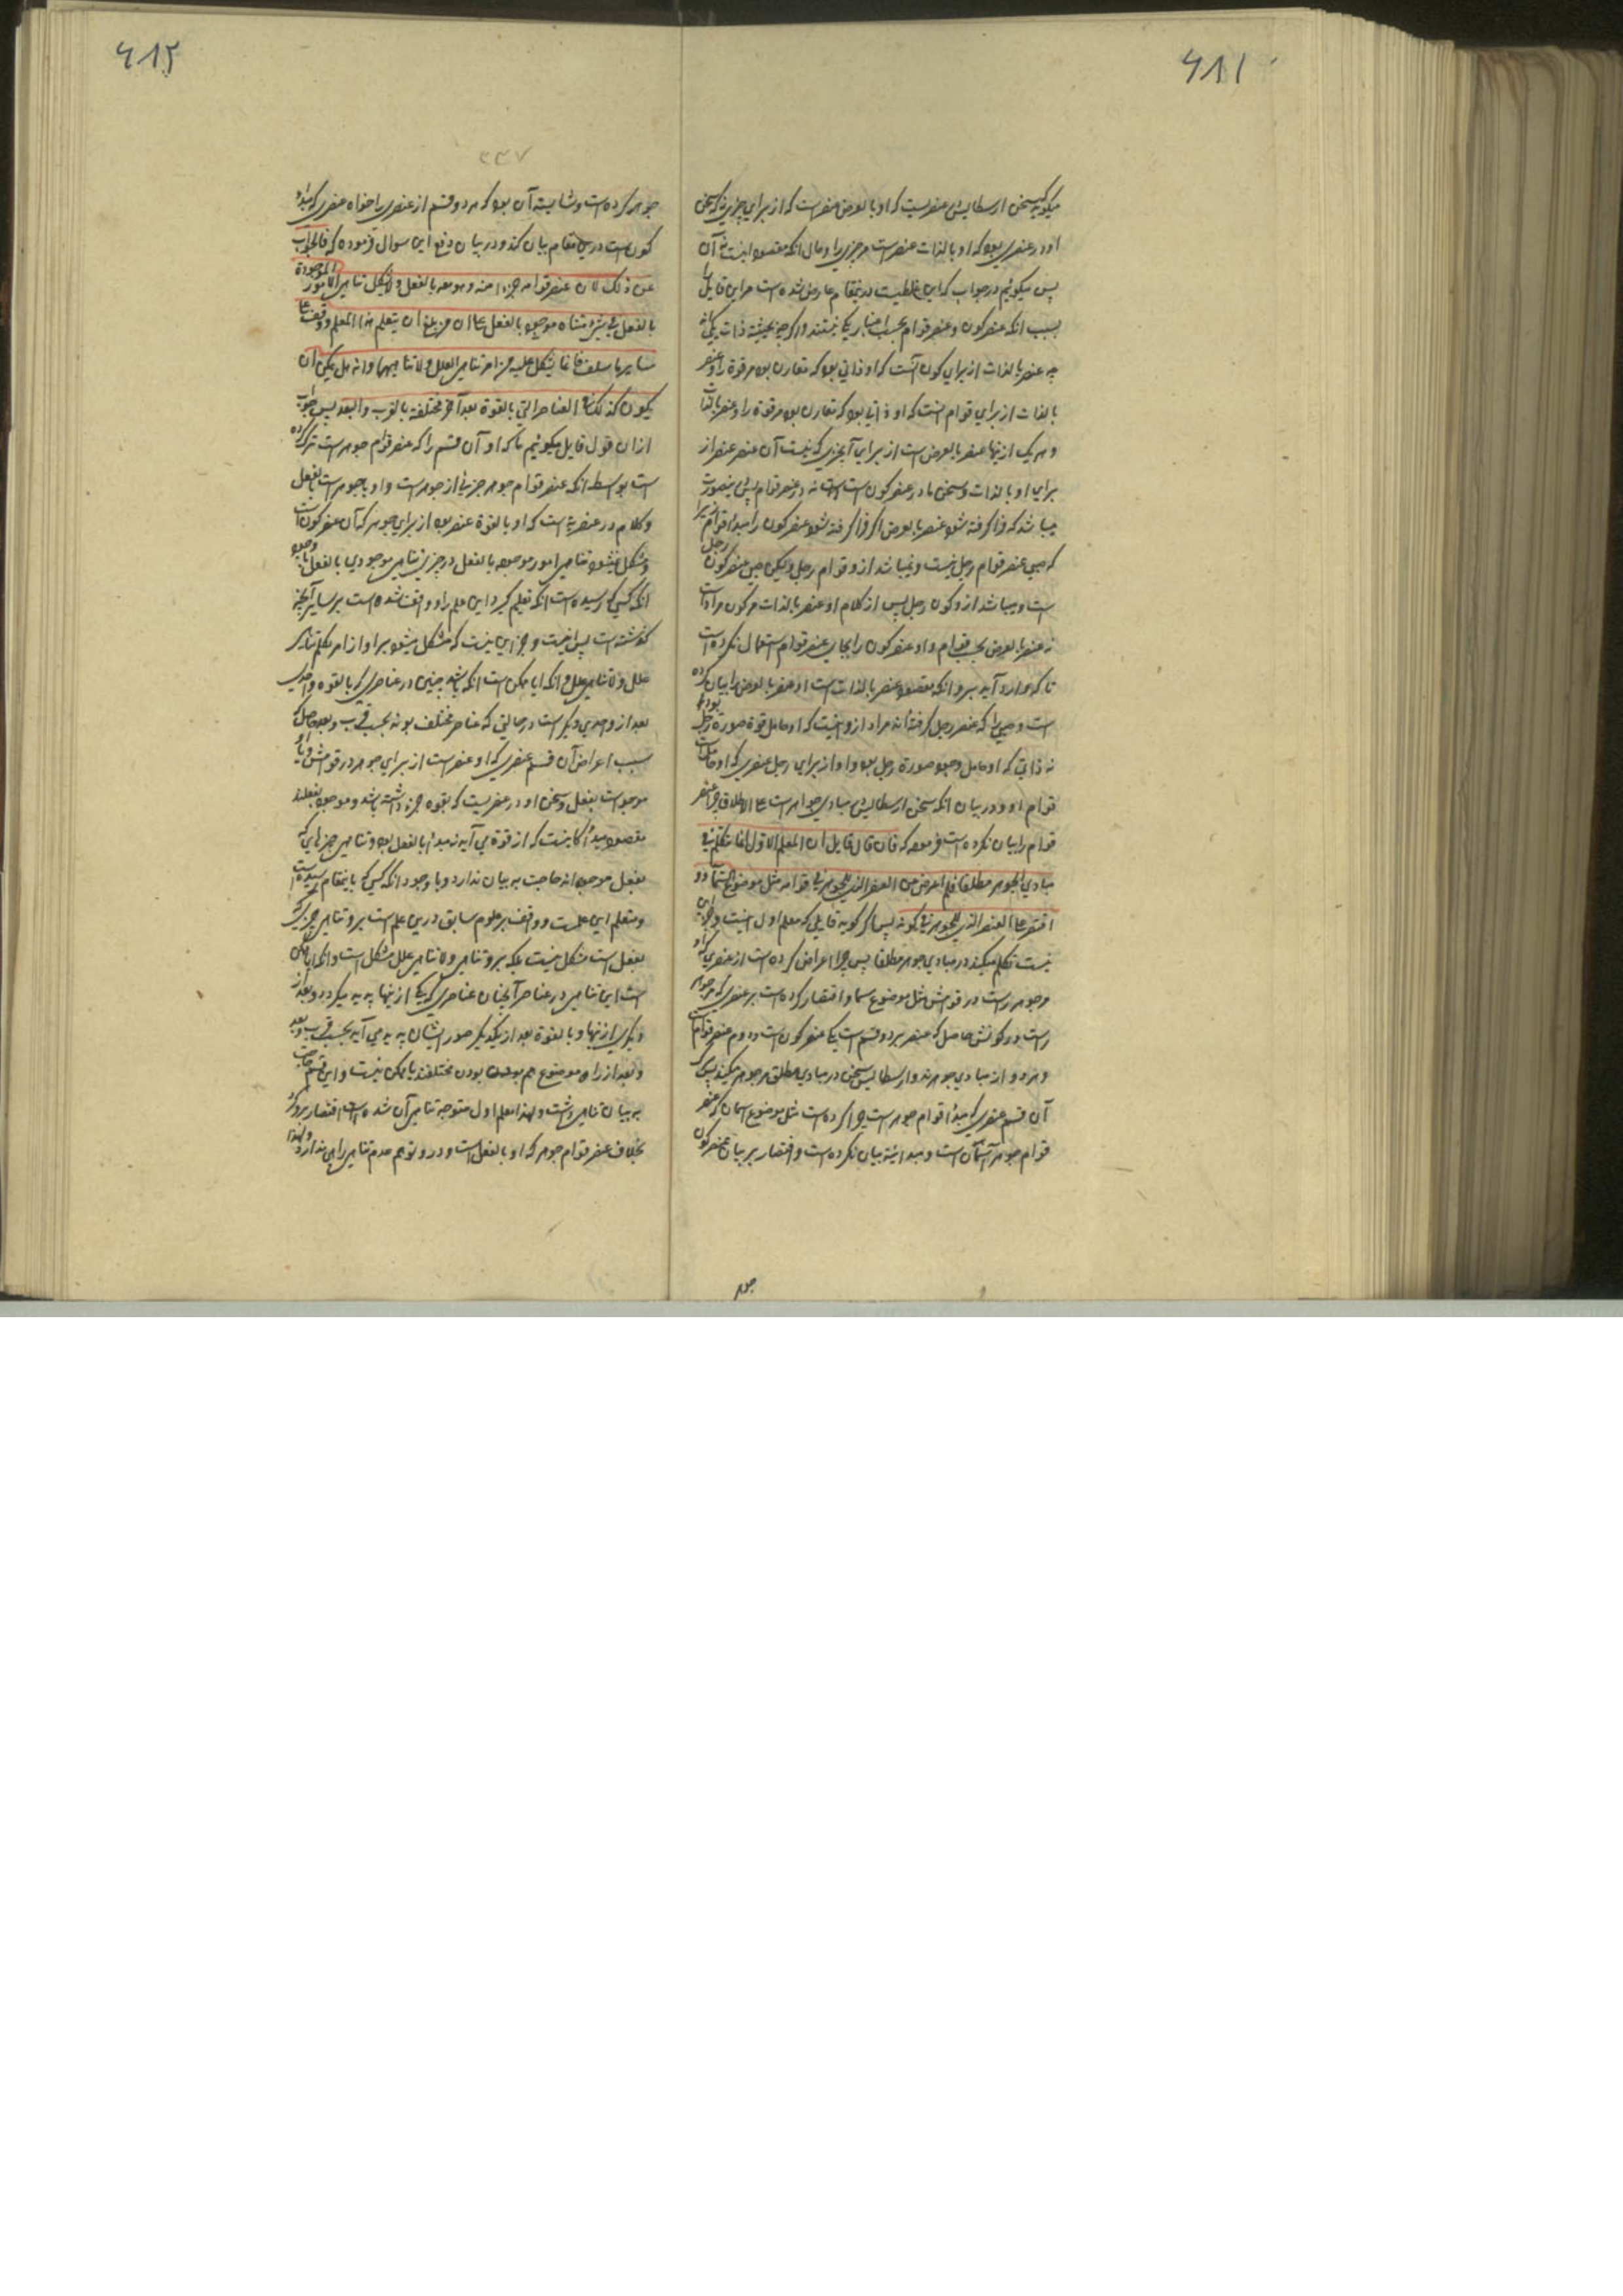 ۶۱۱
میکوید سخن ارسطاليس در عنصریست که او بالعرض عنصر است که از برای چیزی نه که سخن
او در عنصری بود که او بالذات عنصر است هر چیزی را و حال انکه مقصود اینست نه آن
پس میکوئیم در جواب که این غلطیست که درینمقام عارض شده است مر این قایل را
بسبب انکه عنصر کون و عنصر قوام بحسب اعتبار یکی نیستند و اگر چه بحیثیة ذات یکی‌اند
چه عنصر بالذات از برای کون آنست که او ذاتی بود که مقارن بود مر قوة را و عنصر
بالذات از برای قوام انست که او ذاتی بود که مقارن بود مر قوة را و عنصر بالذات
و هر یک ازینها عنصر بالعرض است از برای آنچیزی که نیست آن عنصر عنصر از
برای او بالذات و سخن ما در عنصر کون است نه در عنصر قوام پس بینصورت
میباشد که فرا گرفته شود عنصر بالعرض اگر فرا گرفته شود عنصر کون را مبدأ قوام زیرا
که صبی عنصر قوام رجل نیست و نمیباشد ازو قوام رجل و لیکن صبی عنصر کون رجل
است و میباشد ازو کون رجل پس از کلام او عنصر بالذات مر کون مراد است
نه عنصر بالعرض بحسب قوام و او عنصر کون را بجای عنصر قوام استعمال نکرده است
تا که وارد آید برو انکه مقصود عنصر بالذات است او عنصر بالعرض را بیان کرده
است و صبی را که عنصر رجل گرفته‌اند مراد ازو اینست که او حامل قوة صورة رجل بود
نه ذاتی که او حامل وجود صورة رجل بود و او از برای رجل عنصری که او حامل است
قوام او و در بیان انکه سخن ارسطاليس در مبادی جواهر است علی الاطلاق چرا عنصر
قوام را بیان نکرده است فرموده که فان قال قایل ان المعلم الاول انما تکلم فی
مبادی الجوهر مطلقا فلم اعرض عن العنصر الذی للجوهر فی قوامه مثل موضوع السماء و
اقتصر علی العنصر الذی للجوهر فی کونه پس اگر کوید قایلی که معلم اول اینست و جز این
نیست تکلم میکند در مبادی جوهر مطلقا پس چرا اعراض کرده است از عنصری که او
مر جوهر راست در قوامش مثل موضوع سما و اقتصار کرده است بر عنصری که مر جوهر
راست در کونش حاصل که عنصر بر دو قسم است یکی عنصر کون است و دوم عنصر قوام است
و هر دو از مبادی جوهرند و ارسطاليس سخن در مبادی مطلق مر جوهر میکند پس
آن قسم عنصری که مبدأ قوام جوهر است چرا کرده است مثل موضوع اسمان که عنصر
قوام جوهر آسمان است و مبدائیة بیان نکرده است و اقتصار بر بیان عنصر کون
جوهر
۶۱۲
۳۳۷
جوهر کرده است و شایسته آن بود که هر دو قسم از عنصر را خواه عنصری که مبدأ
کون است درین مقام بیان کند و در بیان دفع این سوال فرموده که فالجواب
عن ذلک لان عنصر قوامه جزء منه و هو معه بالفعل و لا یشکل تناهی الامور الموجودة
بالفعل فی شئ متناه موجود بالفعل علی ان من بلغ ان یتعلم هذا العلم و وقف علی
سایر ما سلف فانما یشکل علیه من امر تناهی العلل و لا تناهیها و انه هل یمکن ان
یکون کذلک فی العناصر التی بالقوة بعد آخر مختلفة بالقرب و البعد پس جواب
ازان قول قایل میکوئیم که او آن قسم را که عنصر قوام جوهر است ترک کرده
است بواسطه انکه عنصر قوام جوهر جزئی از جوهر است و او با جوهر است بالفعل
و کلام در عنصری است که او بالقوة عنصر بود از برای جوهر که آن عنصر کون است
و مشکل نمیشود تناهی امور موجوده بالفعل در چیزی متناهی موجودی بالفعل با وجود
انکه کسی که رسیده است انکه تعلیم کیرد این علم را و واقف شده است بر سایر آنچه
کذشته است پس اینست و جز این نیست که مشکل میشود بر او از امر تکلم تناهی
علل و لاتناهی علل و انکه ایا ممکن است انکه باشد چنین در عناصری که بالقوه واحدی
بعد از واحدی دیکر است در حالتی که عناصر مختلف بوند بحسب قرب و بعد حاصل که
سبب اعراض آن قسم عنصری که او عنصر است از برای جوهر در قوامش و با او
موجود است بفعل و سخن او در عنصریست که بقوه جزء داشته باشد و موجود بفعلند
مقصود مبدأ کائنست که از قوة می آید نه مبدأ بالفعل بود و تناهی چیزهایی که
بفعل موجوداند حاجت به بیان ندارد و با وجود انکه کسی که باینمقام رسیده است
و متعلم این علمست و واقف بر علوم سابق درین علم است برو تناهی چیزی که
بفعل است مشکل نیست بلکه برو تناهی و لاتناهی علل مشکل است و انکه ایا ممکن
است این تناهی در عناصر آنچنان عناصری که یکی ازینها پدید میکردد و بعد از
دیکری ازینها و بالقوة بعد از یکدیکر صور ایشان پدید می آید بحسب قرب و بعد
و بعد از راه موضوع هم بودن بودن مختلفند یا ممکن نیست و این قسم حاجت
به بیان تناهی داشت و لهذا معلم اول متوجه تناهی آن شده است و اقتصار برو کرد
بخلاف عنصر قوام جوهر که او بالفعل است و در و توهم عدم تناهی راهی ندارد و لهذا